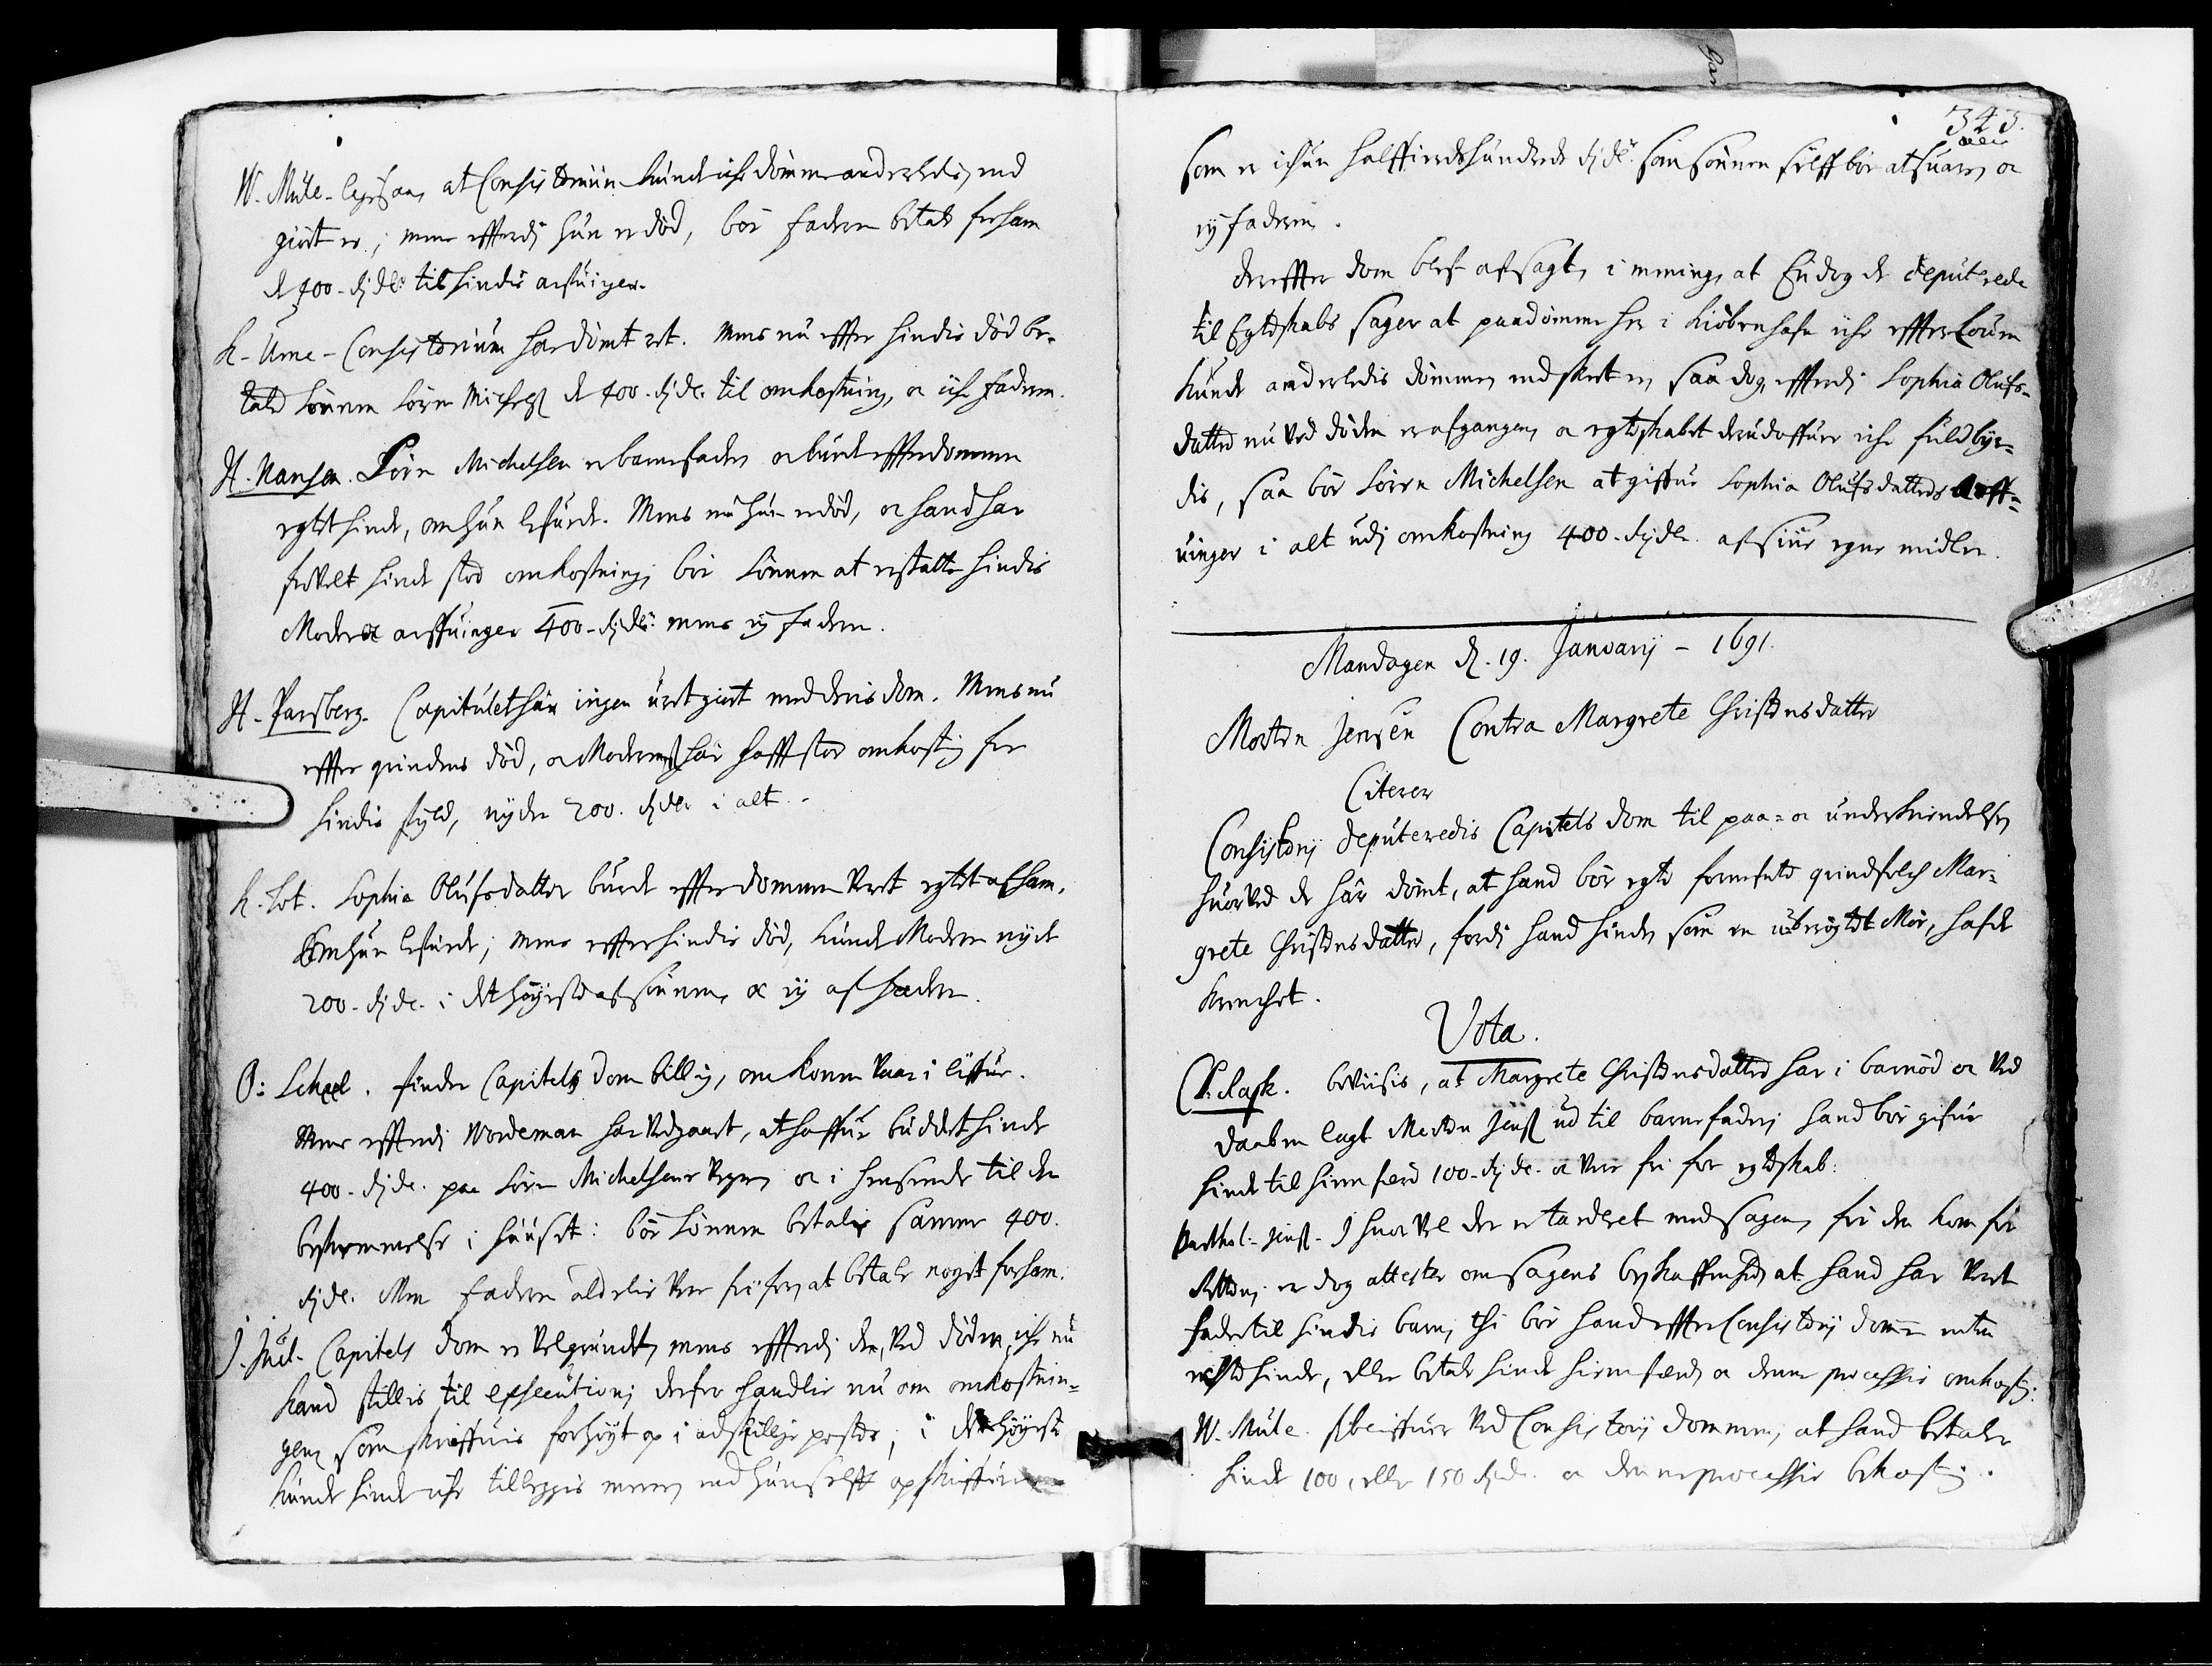 W. Mule. ligesaa, at Consistorium kunde iche dömme anderledis, end
giort er; mens efftterdj hun er död, bör faderen betale for ham
de 400 rjdlr. til hindis arfuinger.
K. Urne. Consistorium har dömt ret. Mens nu effter hindis död be-
tale Sönnen Sören Michelsß de 400 rjdlr. til omkostning, oc iche faderen.
H. Nansen. Sören Michelsen er barnefader, oc burde effter dommen
egtet hinde, om hun lefuede. Mens nu hun er död, oc hand har
forvelt hinde stor omkostning, bör Sönnen at erstatte hindis
Moder oc arffuinger 400 rjdlr: mens ej faderen.
H. Parsberg. Capitulet har ingen uret giort med deris dom. Mens nu
effter qvindens död, oc Moderen har hafft stor omkostnig for
hindis skyld, nyder 200. rjdlr i alt.
K. Tot. Sophia Olufsdatter burde effter dommen veret egtet af ham,
om hun lefuede; mens effter hindis död, kunde Moderen nyde
200. rjdlr. i det höyeste af sönnen, oc ej af faderen.
O: Scheel. finder Capitels dom billig, om konen vaar i liffue.
Mens effterdj Wordeman har vedgaaet, at haffue buddet hinde
400. rjdlr. paa Sören Michelsens vegne, oc i henseende til den
beskemmelse i huuset: bör Sönnen betale samme 400.
rjdlr. Men faderen aldelis vere frj for, at betale noget for ham.
J. Juel. Capitels dom er velgrundet, mens effterdj den, ved döden, iche nu
kand stillis til Exsecution; derfor handlis nu om omkostnin-
gen, som skriffuis forhöyt op i adskillige poster; i det höyeste
kunde hinde iche tilleggis mere, end hun self opskriffuer
343.
som er ichun halffierdehundrede rjdlr. som sönnen sielff bör at suare, oc
ej faderen.
dereffter dom blef afsagt, i mening, at Endog de deputerede
til Egteskabs sager at paadömme her i Kiöbenhafn iche effter Loven
kunde anderledis dömme, end skeet er, saa dog, effterdj Sophia Olufs-
datter nu ved döden er afgangen, oc egteskabet derudoffuer iche fuldbyr-
dis, saa bör Sören Michelsen at giffue Sophia Olufsdatters Arff-
uinger i alt udj omkostning 400. rjdlr. af siine egne midler.
Mandagen d. 19. Januarij - 1691.
Morten Jensen Contra Margrete Christensdatter
Citerer
Consistorij deputeredis Capitels dom til paa- oc underkiendelse,
huorved de har dömt, at hand bör egte formelte qvindfolch Mar-
grete Christensdatter, fordj hand hinde, som en uberögtet Mör, hafde
krenchet.
Vota.
C. Rask. beviisis, at Margrete Christensdatter har i barnöd oc ved
daaben lagt Morten Jensß ud til barnefader; hand bör gifue
hinde til hiemferd 100. rjdlr. oc vere fri for egteskab:
Barthol: Jensß. Ihuorvel der er tardeert med sagen, för den kom for
Retten; er dog attester om sagens beskaffenhed, at hand har veret
fader til hindis barn, thi bör hand effter Consistorij dom enten
egte hinde, eller betale hinde hiemferd, oc denne processis omkostn:
W. Mule. forbliffuer ved Consistorij dommen, at hand betaler
hinde 100, eller 150 rjdlr. oc denne processis bekostnig.